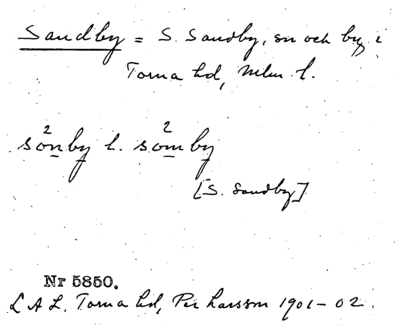 Sandby = S. Sandby, sn och by i
Torna hd, Mlm l.
2 2
sonby l. somby
[S. Sandby]
Nr 5850.
L A L. Torna hd, Per Larsson 1901-02.